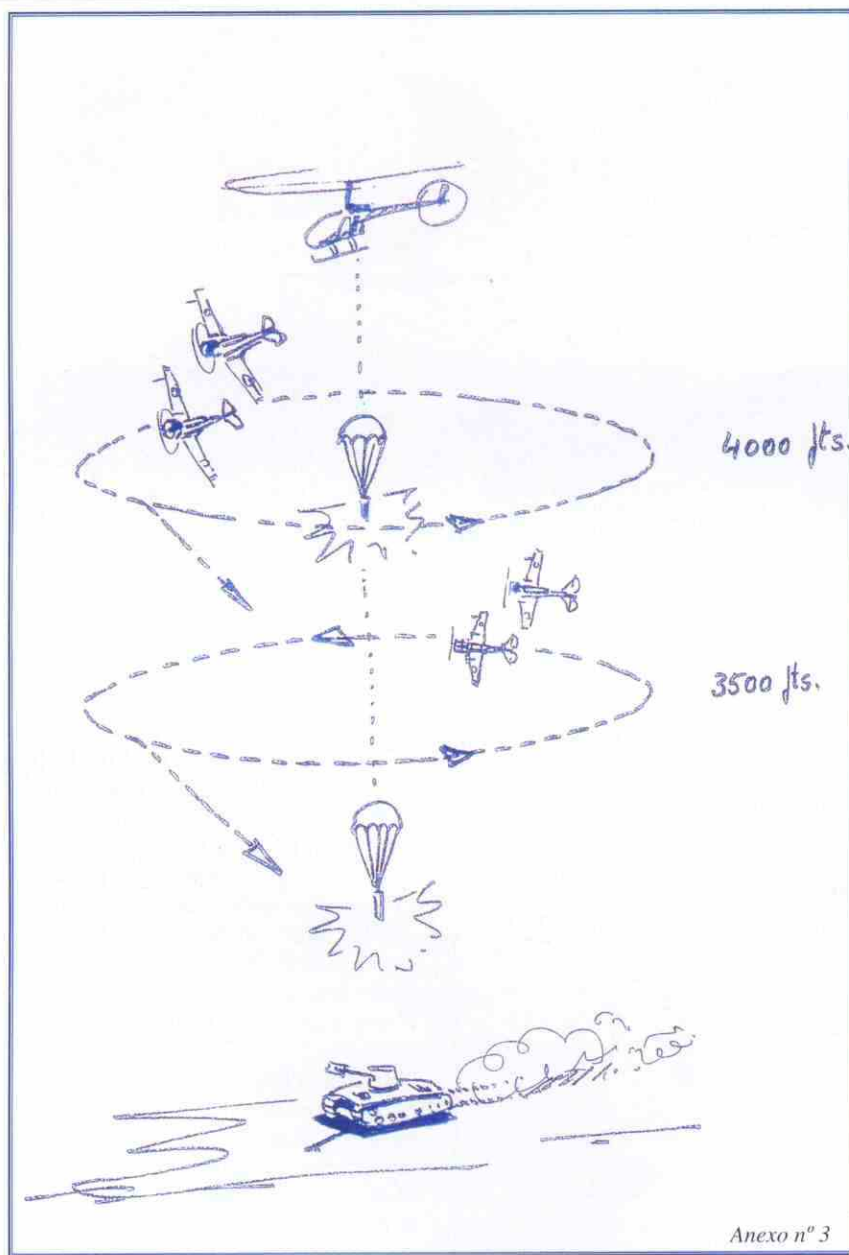 4000 fts.
3500 fts.
Anexo nº 3